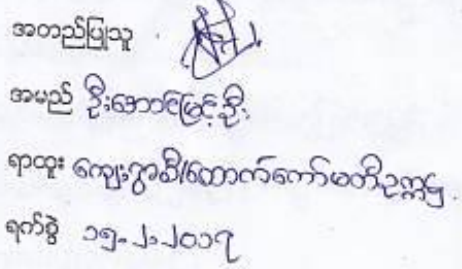 အတည်ပြုသူ
အမည် ဦးအောင်မြင့်ဦး
ရာထူး ကျေးရွာစီ/ထောက်ကော်မတီဥက္ကဋ္ဌ
ရက်စွဲ ၁၅-၂-၂၀၁၇